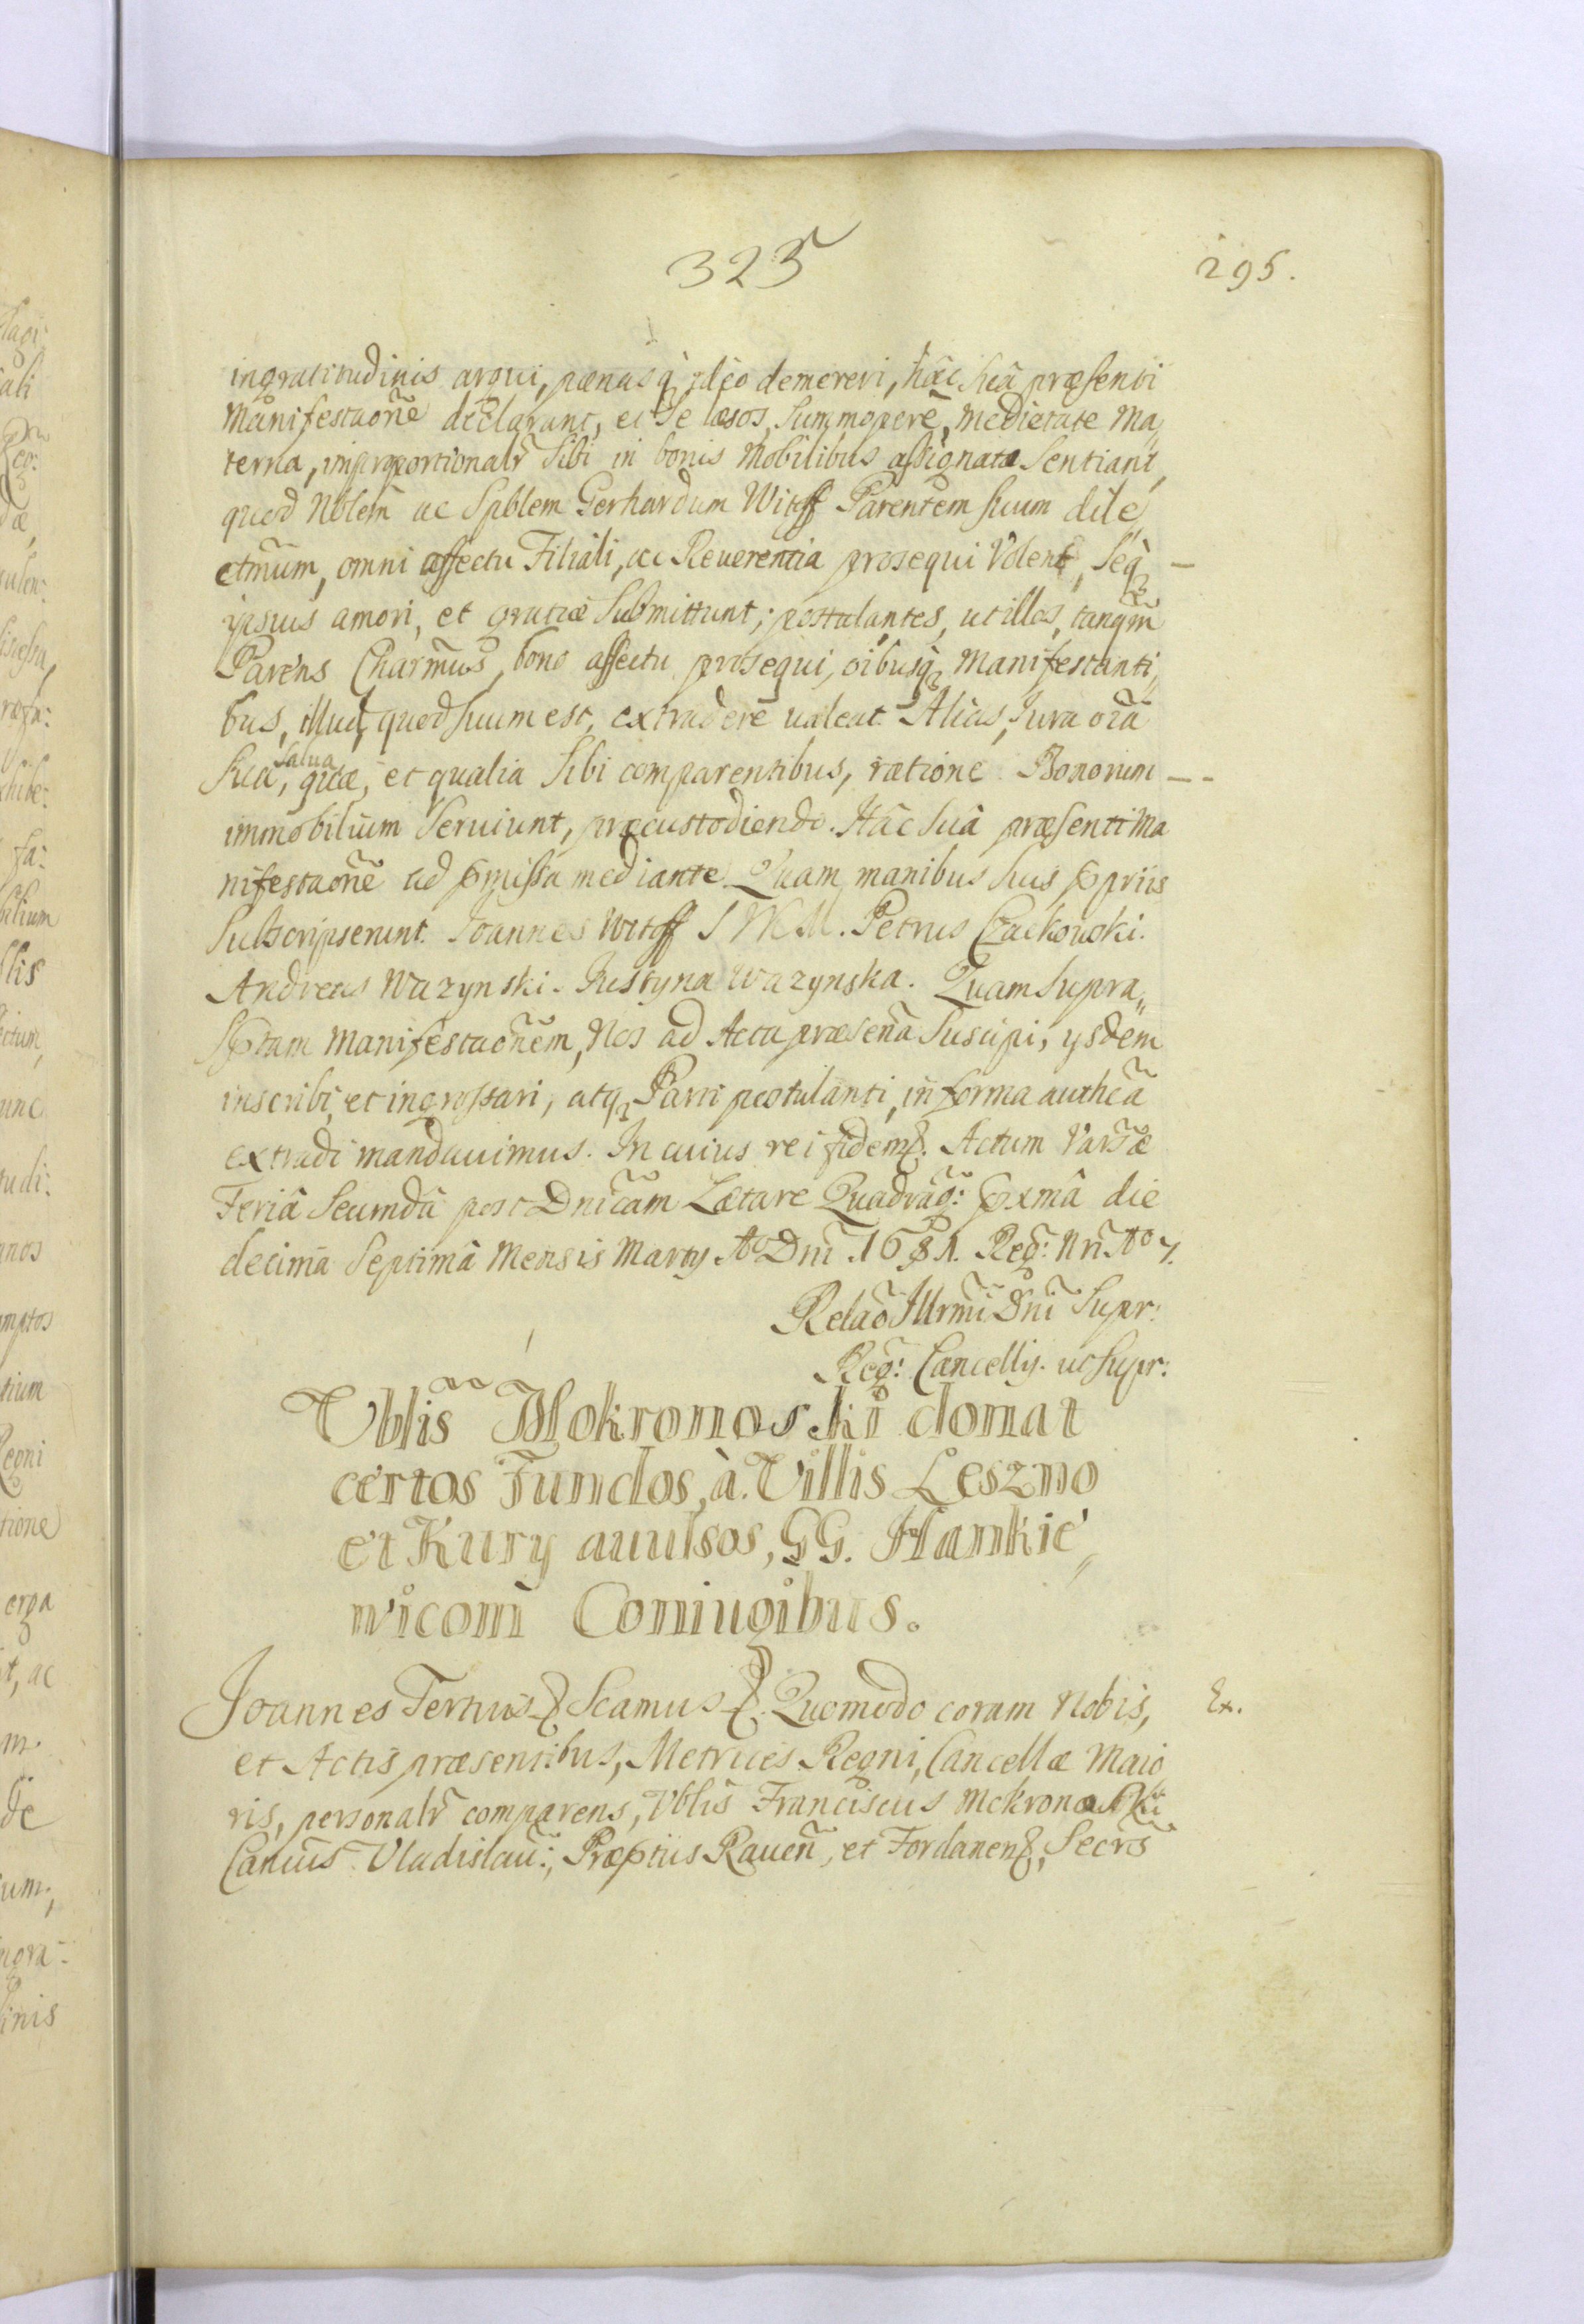 325
295.
ingratitudinis argui, pænasq; ideo demereri, hâc suâ præsenti
Manifestaõne declarant, et se læsos, summopere, medietate Ma„
terna, improportionalr̃ sibi in bonis Mobilibus assignata sentiant,
quod Nõblem ac Spblem Gerhardum Witoff Parentem suum dile„
ctm̃um, omni affectu Filiali, ac Reuerentia prosequi Volent, seq; —
ipsius amori, et gratiæ submittunt; postulantes, ut illos, tanqm̃
Parens Charm̃us, bono affectu prosequi, oĩbusq; Manifestanti„
bus, illud, quod suum est, extradere ualeat. Alias, Jura oĩa
sua, salua, quæ, et qualia sibi comparentibus, ratione Bonorum — -
immobilium seruiunt, præcustodiendo. Hâc suâ præsenti Ma
nifestaõne ad pmissa mediante. Quam manibus suis ppriis
subscripserunt. Joannes Witoff S W M. Petrus Czackowski.
Andreas Wazynski. Justyna Wazynska. Quam supra„
sptam Manifestaõnem, Nos ad Acta præseñа suscipi, ysdem
inscribi, et ingrossari, atq; Parti postulanti, in forma autheã
extradi mandauimus. In cuius rei fidem &. Actum Varsæ
Feriâ secundâ post Dnĩcam Lætare Quadrag̃: pxmâ die
decima septimâ Mensis Marty Aº Dnĩ 1681. Reg: Nrĩ Aº 7.
Relaõ Illrm̃i Dnĩ Supr:
Reg: Cancelly. ut supr:
Vblis Mokronoski donat
certos Fundos, à Villis Leszno
et Kury auulsos, GG. Hankie„
wicom̃ Coniugibus.
Joannes Tertius & Scamus &. Quomodo coram Nobis, Ex.
et Actis præsentibus, Metrices Regni, Cancellæ Maio
ris, personalr̃ comparens, Vblis Franciscus Mokronoski
Canũs Vladislau:, Præptus Raueñ, et Fordanen&, Secrs̃